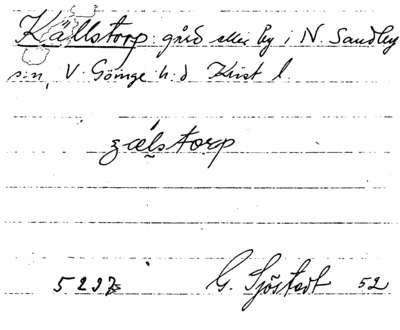 Källstorp gård eller by i N. Sandby
sn, V. Göinge h:d Krist l.
zælstorp
G. Sjöstedt 52